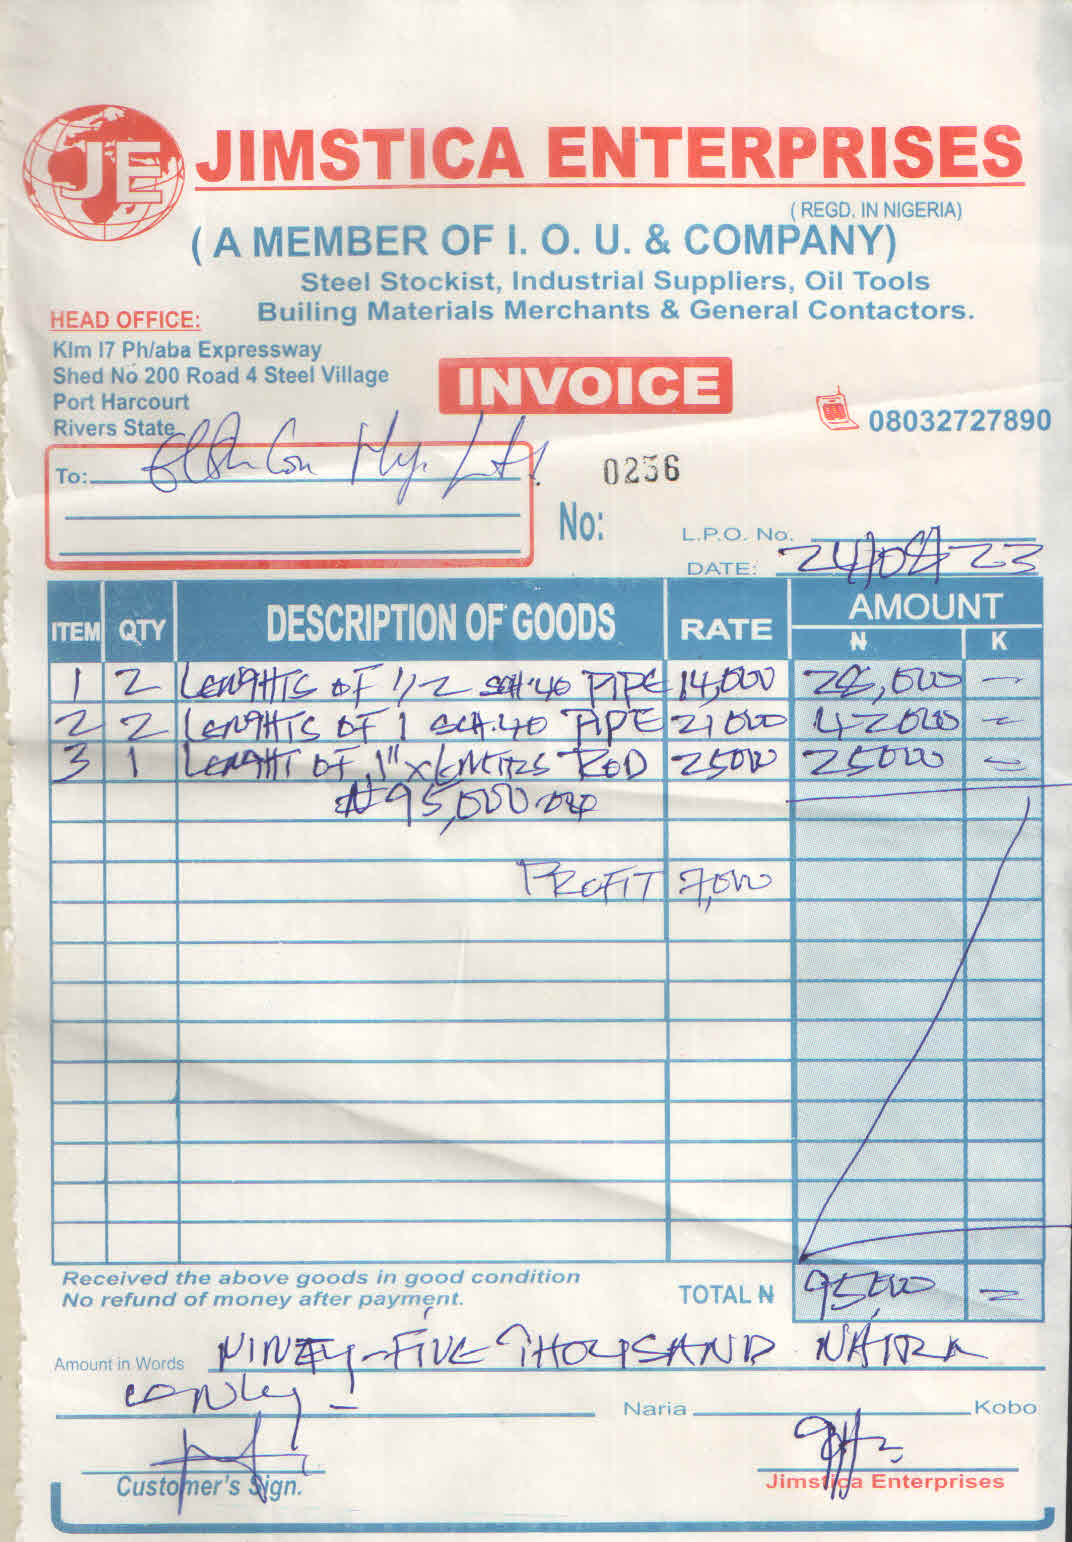 JE
JIMSTICA ENTERPRISES
( REGD. IN NIGERIA)
( A MEMBER OF I. O. U. & COMPANY)
Steel Stockist, Industrial Suppliers, Oil Tools
Builing Materials Merchants & General Contactors.
HEAD OFFICE:
Klm I7 Ph/aba Expressway
Shed No 200 Road 4 Steel Village
Port Harcourt
Rivers State
INVOICE
08032727890
To:
0236
No:
L.P.O. No.
DATE: 24/08/23
ITEM QTY DESCRIPTION OF GOODS RATE AMOUNT
₦ K
1 2 LENGHTS OF 1/2 SCH.40 PIPE 14,000 28,000 -
2 2 LENGHTS OF 1 SCH.40 PIPE 21000 42000 =
3 1 LENGHT OF 1" x ROD 25000 25000 =
₦95,000.00
PROFIT 7,000
Received the above goods in good condition
No refund of money after payment.
TOTAL ₦ 95000 =
Amount in Words NINETY-FIVE THOUSAND NAIRA
ONLY -
Naria Kobo
Customer's Sign.
Jimstica Enterprises